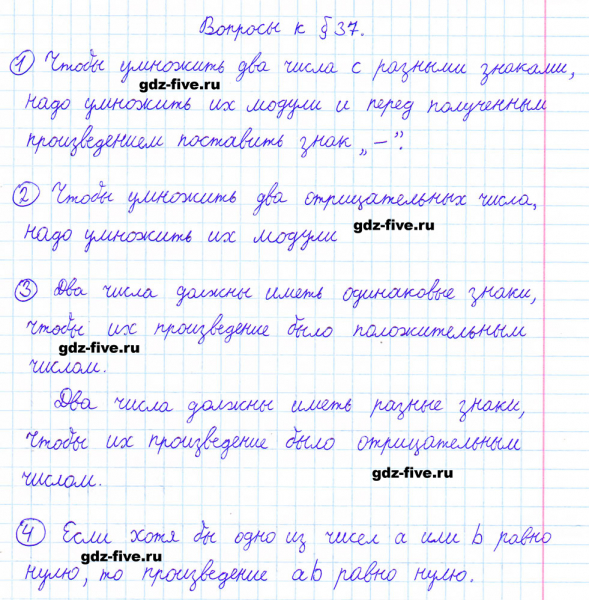 Вопросы к § 37.
① Чтобы умножить два числа с разными знаками,
gdz-five.ru
надо умножить их модули и перед полученным
произведением поставить знак „–”.
② Чтобы умножить два отрицательных числа,
gdz-five.ru
надо умножить их модули
③ Два числа должны иметь одинаковые знаки,
чтобы их произведение было положительным
gdz-five.ru
числом.
Два числа должны иметь разные знаки,
чтобы их произведение было отрицательным
gdz-five.ru
числом.
④ Если хотя бы одно из чисел a или b равно
gdz-five.ru
нулю, то произведение ab равно нулю.